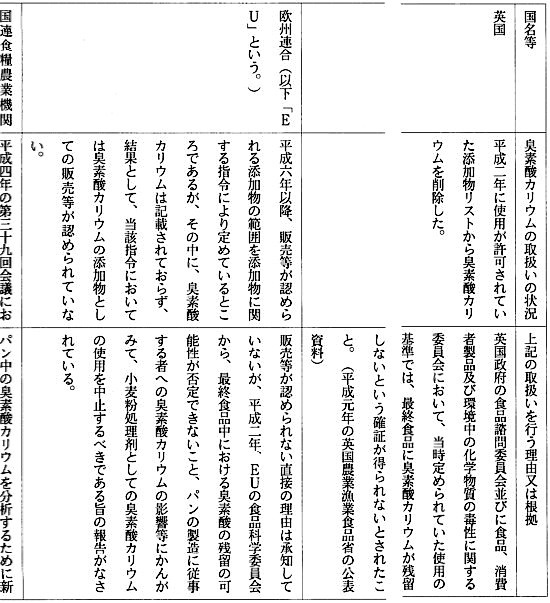 国名等
臭素酸カリウムの取扱いの状況
上記の取扱いを行う理由又は根拠
英国
平成二年に使用が許可されてい
た添加物リストから臭素酸カリ
ウムを削除した。
英国政府の食品諮問委員会並びに食品、消費
者製品及び環境中の化学物質の毒性に関する
委員会において、当時定められていた使用の
基準では、最終食品に臭素酸カリウムが残留
しないという確証が得られないとされたこ
と。（平成元年の英国農業漁業食品省の公表
資料）
欧州連合（以下「E
U」という。）
平成六年以降、販売等が認めら
れる添加物の範囲を添加物に関
する指令により定めているとこ
ろであるが、その中に、臭素酸
カリウムは記載されておらず、
結果として、当該指令において
は臭素酸カリウムの添加物とし
ての販売等が認められていな
い。
販売等が認められない直接の理由は承知して
いないが、平成二年、EUの食品科学委員会
から、最終食品中における臭素酸の残留の可
能性が否定できないこと、パンの製造に従事
する者への臭素酸カリウムの影響等にかんが
みて、小麦粉処理剤としての臭素酸カリウム
の使用を中止するべきである旨の報告がなさ
れている。
国連食糧農業機関
平成四年の第三十九回会議にお
パン中の臭素酸カリウムを分析するために新